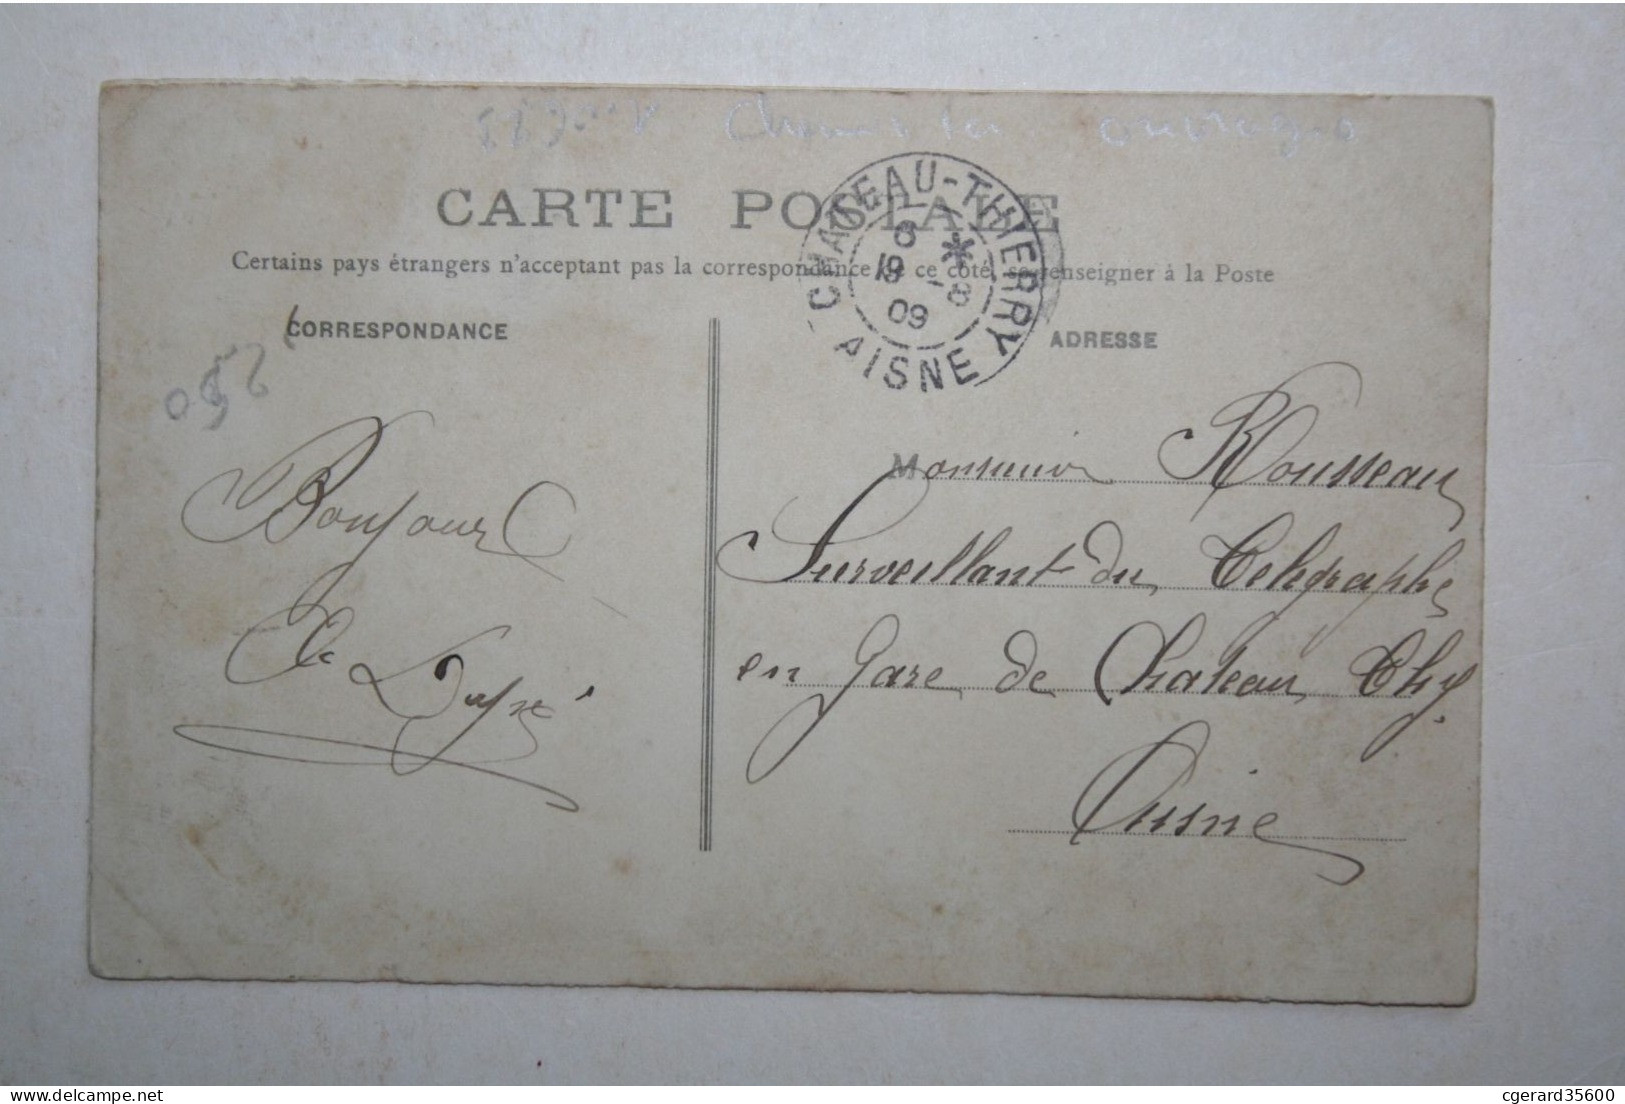 CARTE POSTALE
Certains pays étrangers n'acceptant pas la correspondance de ce côté, se renseigner à la Poste
CORRESPONDANCE
ADRESSE
CHATEAU-THIERRY
8 * 19 -8 09
AISNE
250
Bonjour
Monsieur Rousseau
Surveillant du Télégraphe
en Gare de Chateau Thy.
Aisne
delcampe.net
cgerard35600